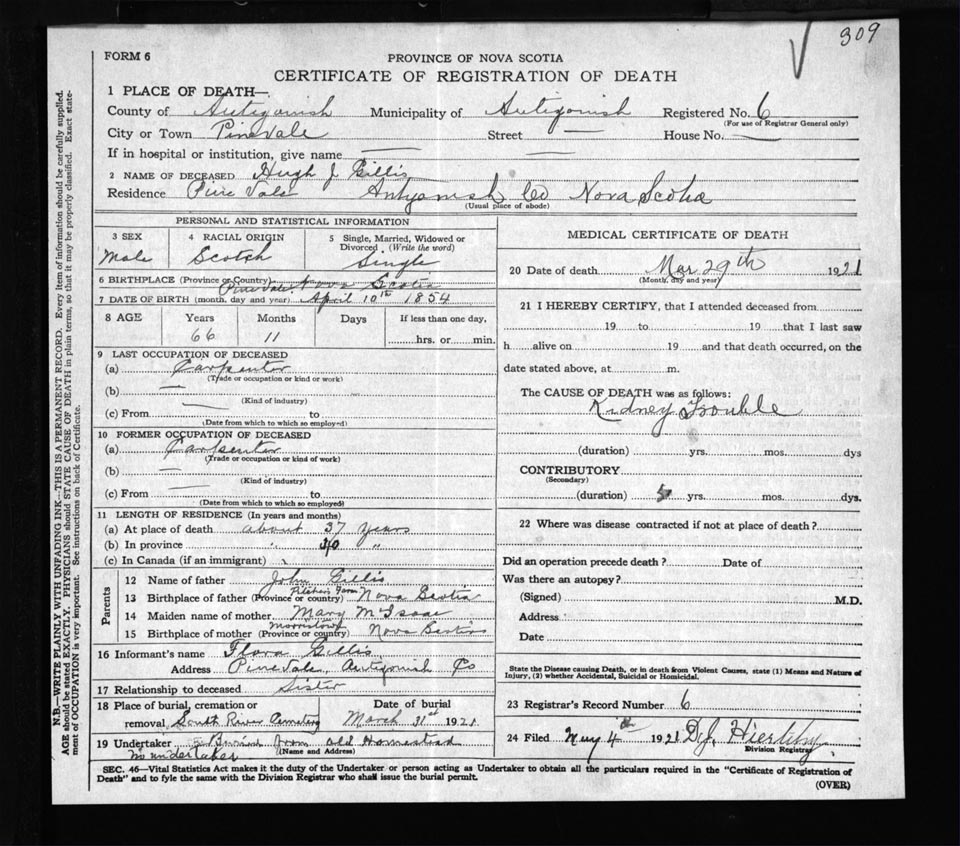 309
FORM 6
PROVINCE OF NOVA SCOTIA
CERTIFICATE OF REGISTRATION OF DEATH
1 PLACE OF DEATH—
County of Antigonish Municipality of Antigonish Registered No. 6
(For use of Registrar General only)
City or Town Pinevale Street — House No. —
If in hospital or institution, give name — —
2 NAME OF DECEASED Hugh J Gillis
Residence Pine Vale Antigonish Co Nova Scotia
(Usual place of abode)
PERSONAL AND STATISTICAL INFORMATION
3 SEX 4 RACIAL ORIGIN 5 Single, Married, Widowed or Divorced (Write the word)
Male Scotch Single
6 BIRTHPLACE (Province or Country) Pine Vale Nova Scotia
7 DATE OF BIRTH (month, day and year) April 10th 1854
8 AGE Years Months Days If less than one day,
66 11 hrs. or min.
9 LAST OCCUPATION OF DECEASED
(a) Carpenter
(Trade or occupation or kind or work)
(b) —
(Kind of industry)
(c) From — to
(Date from which to which so employed)
10 FORMER OCCUPATION OF DECEASED
(a) Carpenter
(Trade or occupation or kind of work)
(b) —
(Kind of industry)
(c) From — to
(Date from which to which so employed)
11 LENGTH OF RESIDENCE (In years and months)
(a) At place of death about 37 years
(b) In province " "
(c) In Canada (if an immigrant)
Parents
12 Name of father John Gillis
13 Birthplace of father (Province or country) Pitchers Farm Nova Scotia
14 Maiden name of mother Mary McIsaac
15 Birthplace of mother (Province or country) Morristown Nova Scotia
16 Informant's name Flora Gillis
Address Pinevale Antigonish Co
17 Relationship to deceased Sister
18 Place of burial, cremation or Date of burial
removal South River Cemetery March 31st 1921
19 Undertaker Buried from old Homestead
No undertaker (Name and Address)
MEDICAL CERTIFICATE OF DEATH
20 Date of death Mar 29th 1921
(Month, day and year)
21 I HEREBY CERTIFY, that I attended deceased from
19 to 19 that I last saw
h alive on 19 and that death occurred, on the
date stated above, at m.
The CAUSE OF DEATH was as follows:
Kidney Trouble
(duration) yrs. mos. dys
CONTRIBUTORY
(Secondary)
(duration) 5 yrs. mos. dys.
22 Where was disease contracted if not at place of death?
Did an operation precede death? Date of
Was there an autopsy?
(Signed) M.D.
Address
Date
State the Disease causing Death, or in death from Violent Causes, state (1) Means and Nature of
Injury, (2) whether Accidental, Suicidal or Homicidal.
23 Registrar's Record Number 6
24 Filed May 4th 1921 D.J.
Division Registrar
SEC. 46—Vital Statistics Act makes it the duty of the Undertaker or person acting as Undertaker to obtain all the particulars required in the "Certificate of Registration of
Death" and to fyle the same with the Division Registrar who shall issue the burial permit.
(OVER)
N.B.—WRITE PLAINLY WITH UNFADING INK—THIS IS A PERMANENT RECORD. Every item of information should be carefully supplied.
AGE should be stated EXACTLY. PHYSICIANS should STATE CAUSE OF DEATH in plain terms, so that it may be properly classified. Exact state-
ment of OCCUPATION is very important. See instructions on back of Certificate.